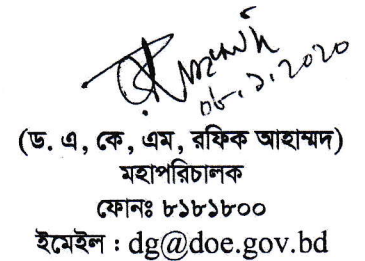 ০৮.১.২০২০
(ড. এ, কে, এম, রফিক আহাম্মদ)
মহাপরিচালক
ফোনঃ ৮১৮১৮০০
ইমেইল : dg@doe.gov.bd